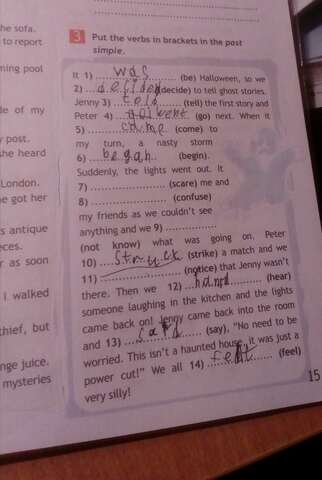 he sofa.
to report
ming pool
le of my
y post.
she heard
London.
e got her
s antique
eces.
r as soon
I walked
hief, but
nge juice.
mysteries
3 Put the verbs in brackets in the past
simple.
It 1) was (be) Halloween, so we
2) decided (decide) to tell ghost stories.
Jenny 3) told (tell) the first story and
Peter 4) went (go) next. When it
5) came (come) to
my turn, a nasty storm
6) began (begin).
Suddenly, the lights went out. It
7) ............... (scare) me and
8) ............... (confuse)
my friends as we couldn't see
anything and we 9) ...............
(not know) what was going on. Peter
10) struck (strike) a match and we
11) ............... (notice) that Jenny wasn't
there. Then we 12) (hear)
someone laughing in the kitchen and the lights
came back on! Jenny came back into the room
and 13) said (say), "No need to be
worried. This isn't a haunted house, it was just a
power cut!" We all 14) felt (feel)
very silly!
15